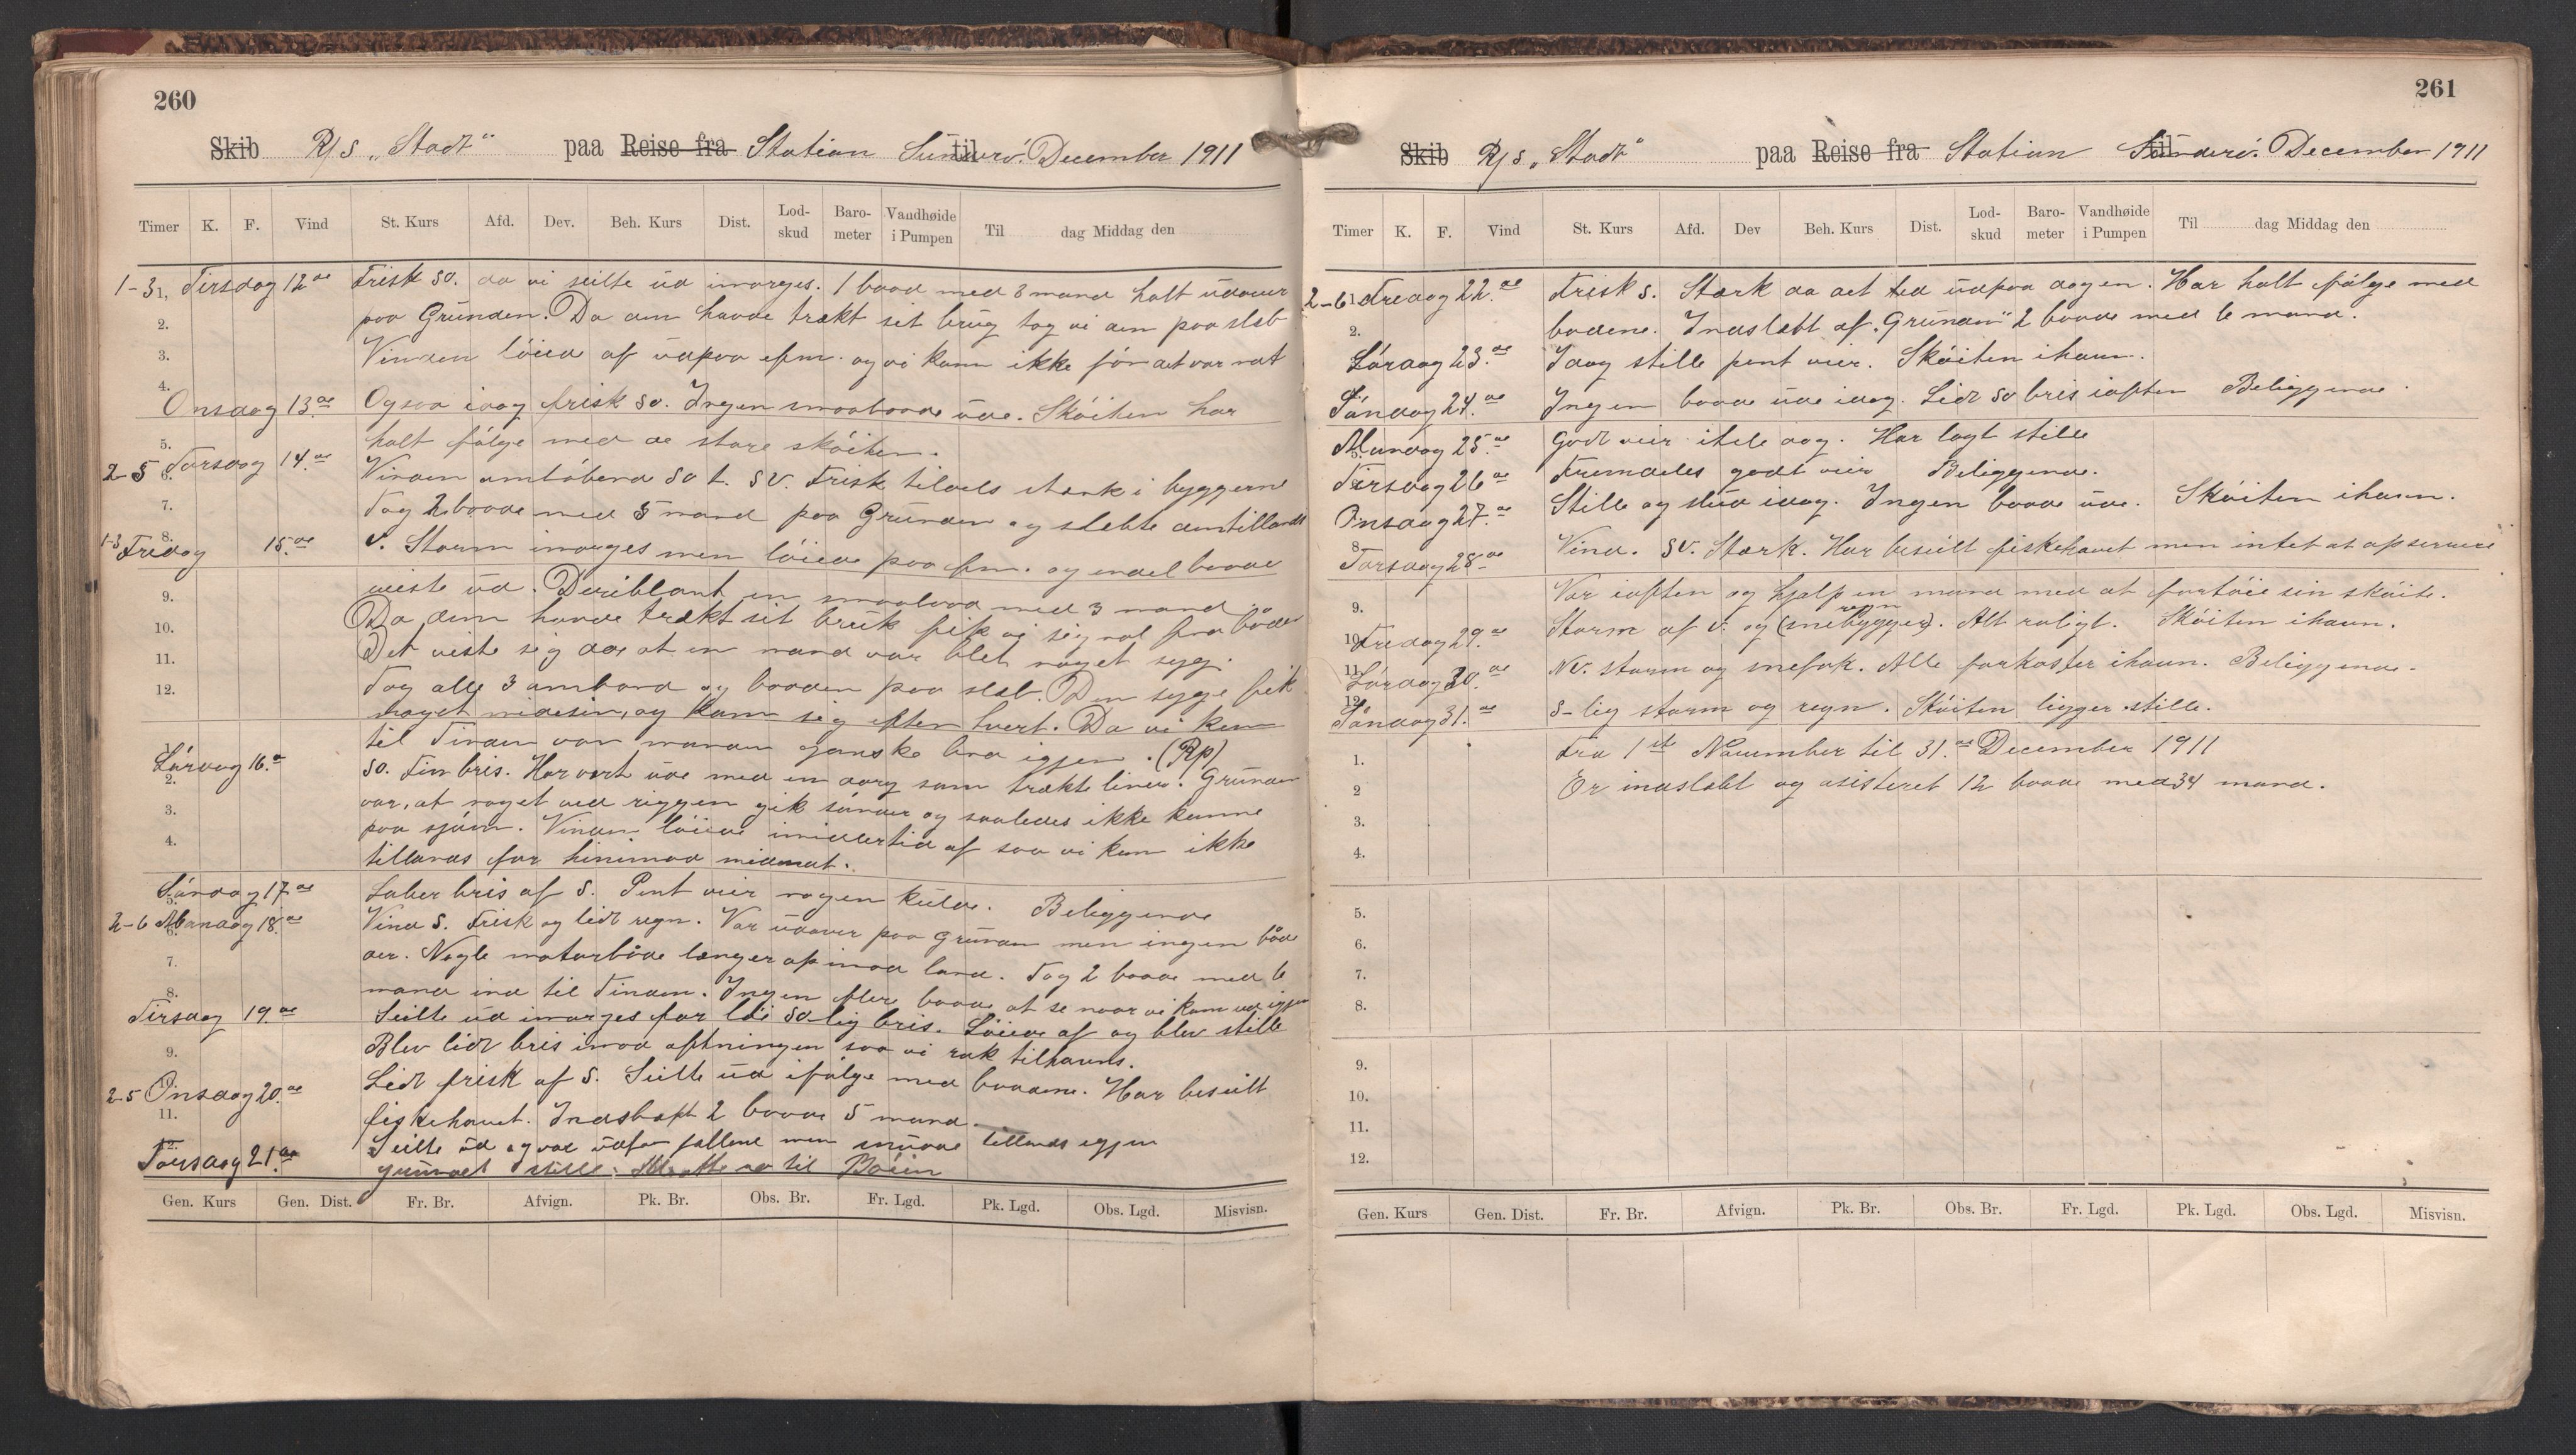 260
Skib R/S „Stadt“ paa Reise fra Station til December 1911
Timer K. F. Vind St. Kurs Afd. Dev. Beh. Kurs Dist. Lod-skud Baro-meter Vandhøide i Pumpen Til dag Middag den
1-3 1. Tirsdag 12de Frisk SO. da vi seilte ud imorges. 1 baad med 3 mand halt udover
2. paa Grunden. Da dem havde trækt sit brug tog vi dem paa slæb
3. Vinden løied af udpaa efm. og vi kom ikke før det var nat
4. Onsdag 13de Ogsaa idag frisk SO. Ingen smaabaade ude. Skøiten har
5. halt følge med de store skøiter.
2-5 6. Torsdag 14de Vinden omløbend SO t. SV. Frisk tildels stærk i byggerne
7. Tog 2 baade med 5 mand paa Grunden og slebte dem tillands
1-3 8. Fredag 15de V. Storm imorges men løiede paa fm. og endel baade
9. reiste ud. Deriblant en smaabaad med 3 mand
10. Da dem havde trækt sit bruk fik vi signal fra båden
11. Det viste sig da at en mand var blet noget syg.
12. Tog alle 3 ombord og baaden paa slæb. Den syge fik
noget midesin, og kom sig efter hvert. Da vi kom
til Tinden var manden ganske bra igjen. (Rp)
Lørdag 16de SO. Fin bris. Har vært ude med en dorg som trækte liner. Grunden
2. var, at noget ved riggen gik sønder og saaledes ikke kunne
3. paa sjøen. Vinden løiede imidlertid af saa vi kom ikke
4. tillands før henimod midnat.
5. Søndag 17de Laber bris af S. Pent veir nogen kulde. Beliggende
2-6 6. Mandag 18de Vind S. Frisk og lidt regn. Var udover paa Grunden men ingen båd
7. der. Nogle motorbåde længer op imod land. Tog 2 baade med 6
8. mand ind til Tinden. Ingen flere baade at se naar vi kom ud igjen
Tirsdag 19de Seilte ud imorges for løi SO-lig bris. Løiede af og blev stille
9. Blev lidt bris imod aftningen saa vi rak tilhavns.
2-5 10. Onsdag 20de Lidt frisk af S. Seilte ud ifølge med baadene. Har beseilt
11. fiskehavet. Indslæpt 2 baade 5 mand.
12. Torsdag 21de Seilte ud og var udfor fallene men snuede tillands igjen
grundet stille. til Bøien
Gen. Kurs Gen. Dist. Fr. Br. Afvign. Pk. Br. Obs. Br. Fr. Lgd. Pk. Lgd. Obs. Lgd. Misvisn.
261
Skib R/S „Stadt“ paa Reise fra Station til December 1911
Timer K. F. Vind St. Kurs Afd. Dev Beh. Kurs Dist. Lod-skud Baro-meter Vandhøide i Pumpen Til dag Middag den
2-6 1. Fredag 22de Frisk S. Stærk da det led udpaa dagen. Har halt følge med
2. baadene. Indslæbt af „Grunden“ 2 baade med 6 mand.
Lørdag 23de Idag stille pent veir. Skøiten ihavn.
Søndag 24de Ingen baade ude idag. Lidt SO bris iaften Beliggende.
Mandag 25de Godt veir itele dag. Har lagt stille
Tirsdag 26de Fremdeles godt veir Beliggende.
Onsdag 27de Stille og slud idag. Ingen baade ude. Skøiten ihavn.
8. Torsdag 28de Vind. SV. Stærk. Har beseilt fiskehavet men intet at opservere
9. Var iaften og hjalp en mand med at fortøie sin skøite.
10. Fredag 29de Storm af V. og (snebygger) regn. Alt roligt. Skøiten ihavn.
11. Lørdag 30de NV. storm og snefok. Alle farkoster ihavn. Beliggende.
12. Søndag 31de S-lig storm og regn. Skøiten ligger stille.
1. Fra 1ste November til 31de December 1911
2 Er indslæbt og asisteret 12 baade med 34 mand.
3.
4.
5.
6.
7.
8.
9.
10.
11.
12.
Gen. Kurs Gen. Dist. Fr. Br. Afvign. Pk. Br. Obs. Br. Fr. Lgd. Pk. Lgd. Obs. Lgd. Misvisn.